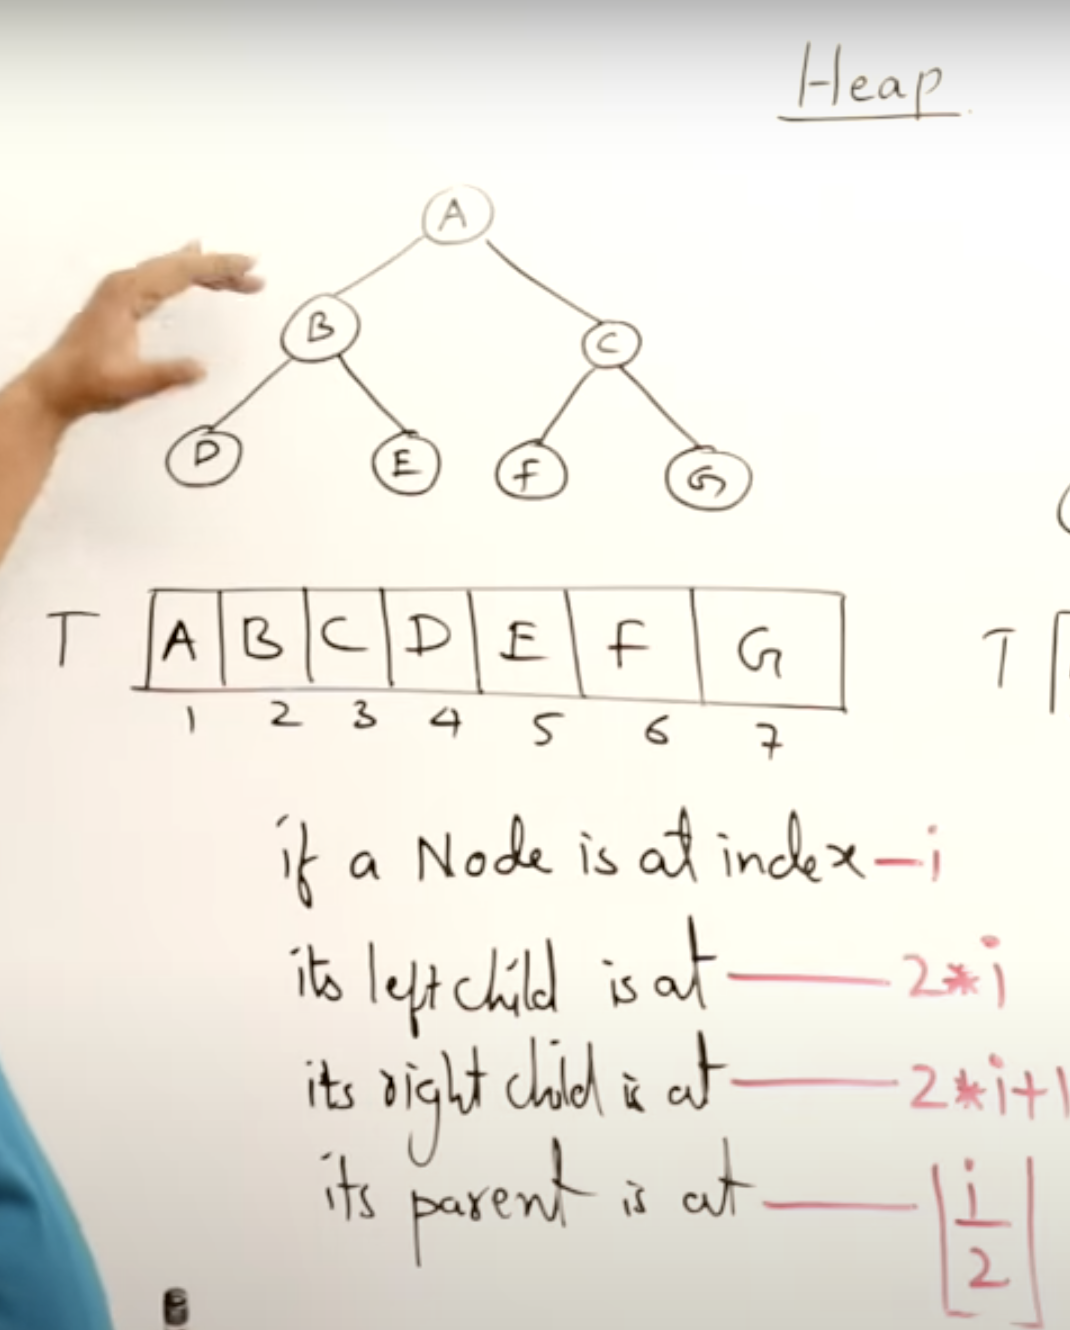 Heap
A
B C
D E F G
T A B C D E F G T
1 2 3 4 5 6 7
if a Node is at index — i
its left child is at — 2*i
its right child is at — 2*i+1
its parent is at — ⌊i/2⌋